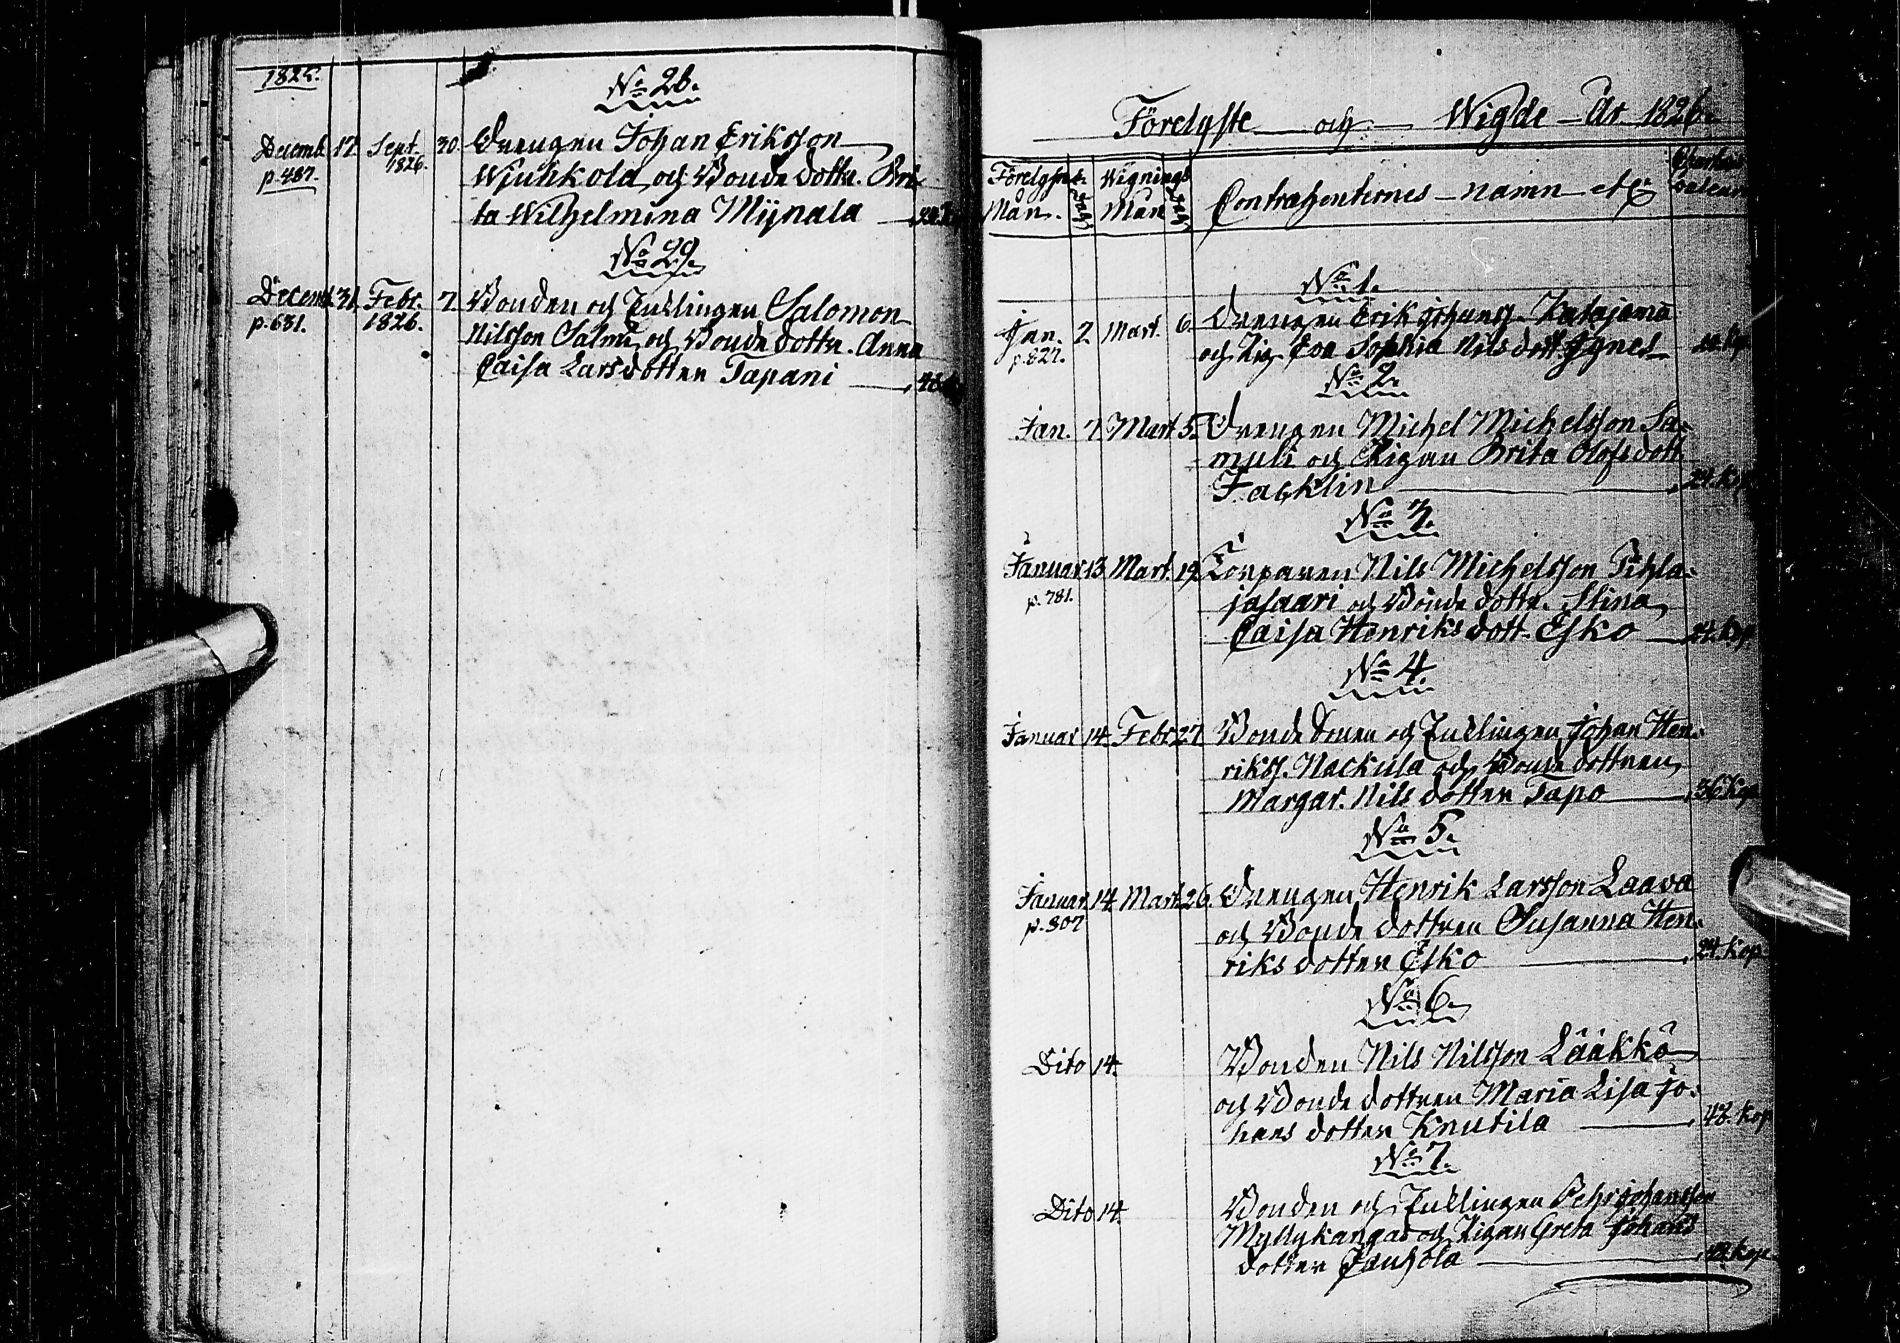 1825.
No 28.
Decemb. 17. Sept. 30. Drengen Johan Eriksson
p. 487. 1826. Wjuhkola och Bonde dottr. Bri-
ta Wilhelmina Mijnala
No 29.
Decemb. 31. Febr. 7. Bonden och Enklingen Salomon
p. 631. 1826. Nilsson Salmi och Bonde dottr. Anna
Caisa Larsdotter Tapani 48
Förelyste och Wigde År 1826.
Förelysn. Dag Wignings Dag Contrahenternes namn etc
Mån. Mån
No 1.
Jan. 2 Mart. 6. Drengen Erik Johanss. Katajama
p. 827. och Pig. Eva Sophia Nils dott. Ignes
No 2.
Jan. 7 Mart 5. Drengen Michel Michelsson Sa-
muli och Pigan Brita Olofsdott.
Facklin 24. Kop.
No 3.
Januar 13 Mart. 19 Torparen Nils Michelsson Pihla-
p. 781. jasaari och Bonde dottr. Stina
Caisa Henriks dott. Esko 24. Kop.
No 4.
Januar 14. Febr 27. Bonde Sonen och Enklingen Johan Hen-
rikss. Nackula och Bonde dottren
Margar. Nils dotter Tapo 36 Kop
No 5.
Januar. 14. Mart. 26. Drengen Henrik Larsson Laava
p. 307 och Bonde dottren Susanna Hen-
riks dotter Esko 24. Kop
No 6.
Dito 14. Bonden Nils Nilsson Lääkkö
och Bonde dottren Maria Lisa Jo-
hans dotter Knutila 48. Kop
No 7.
Dito 14. Bonden och Enklingen Pehr Johansson
Myllykangas och Pigan Greta Johans
dotter Jauhola Kop